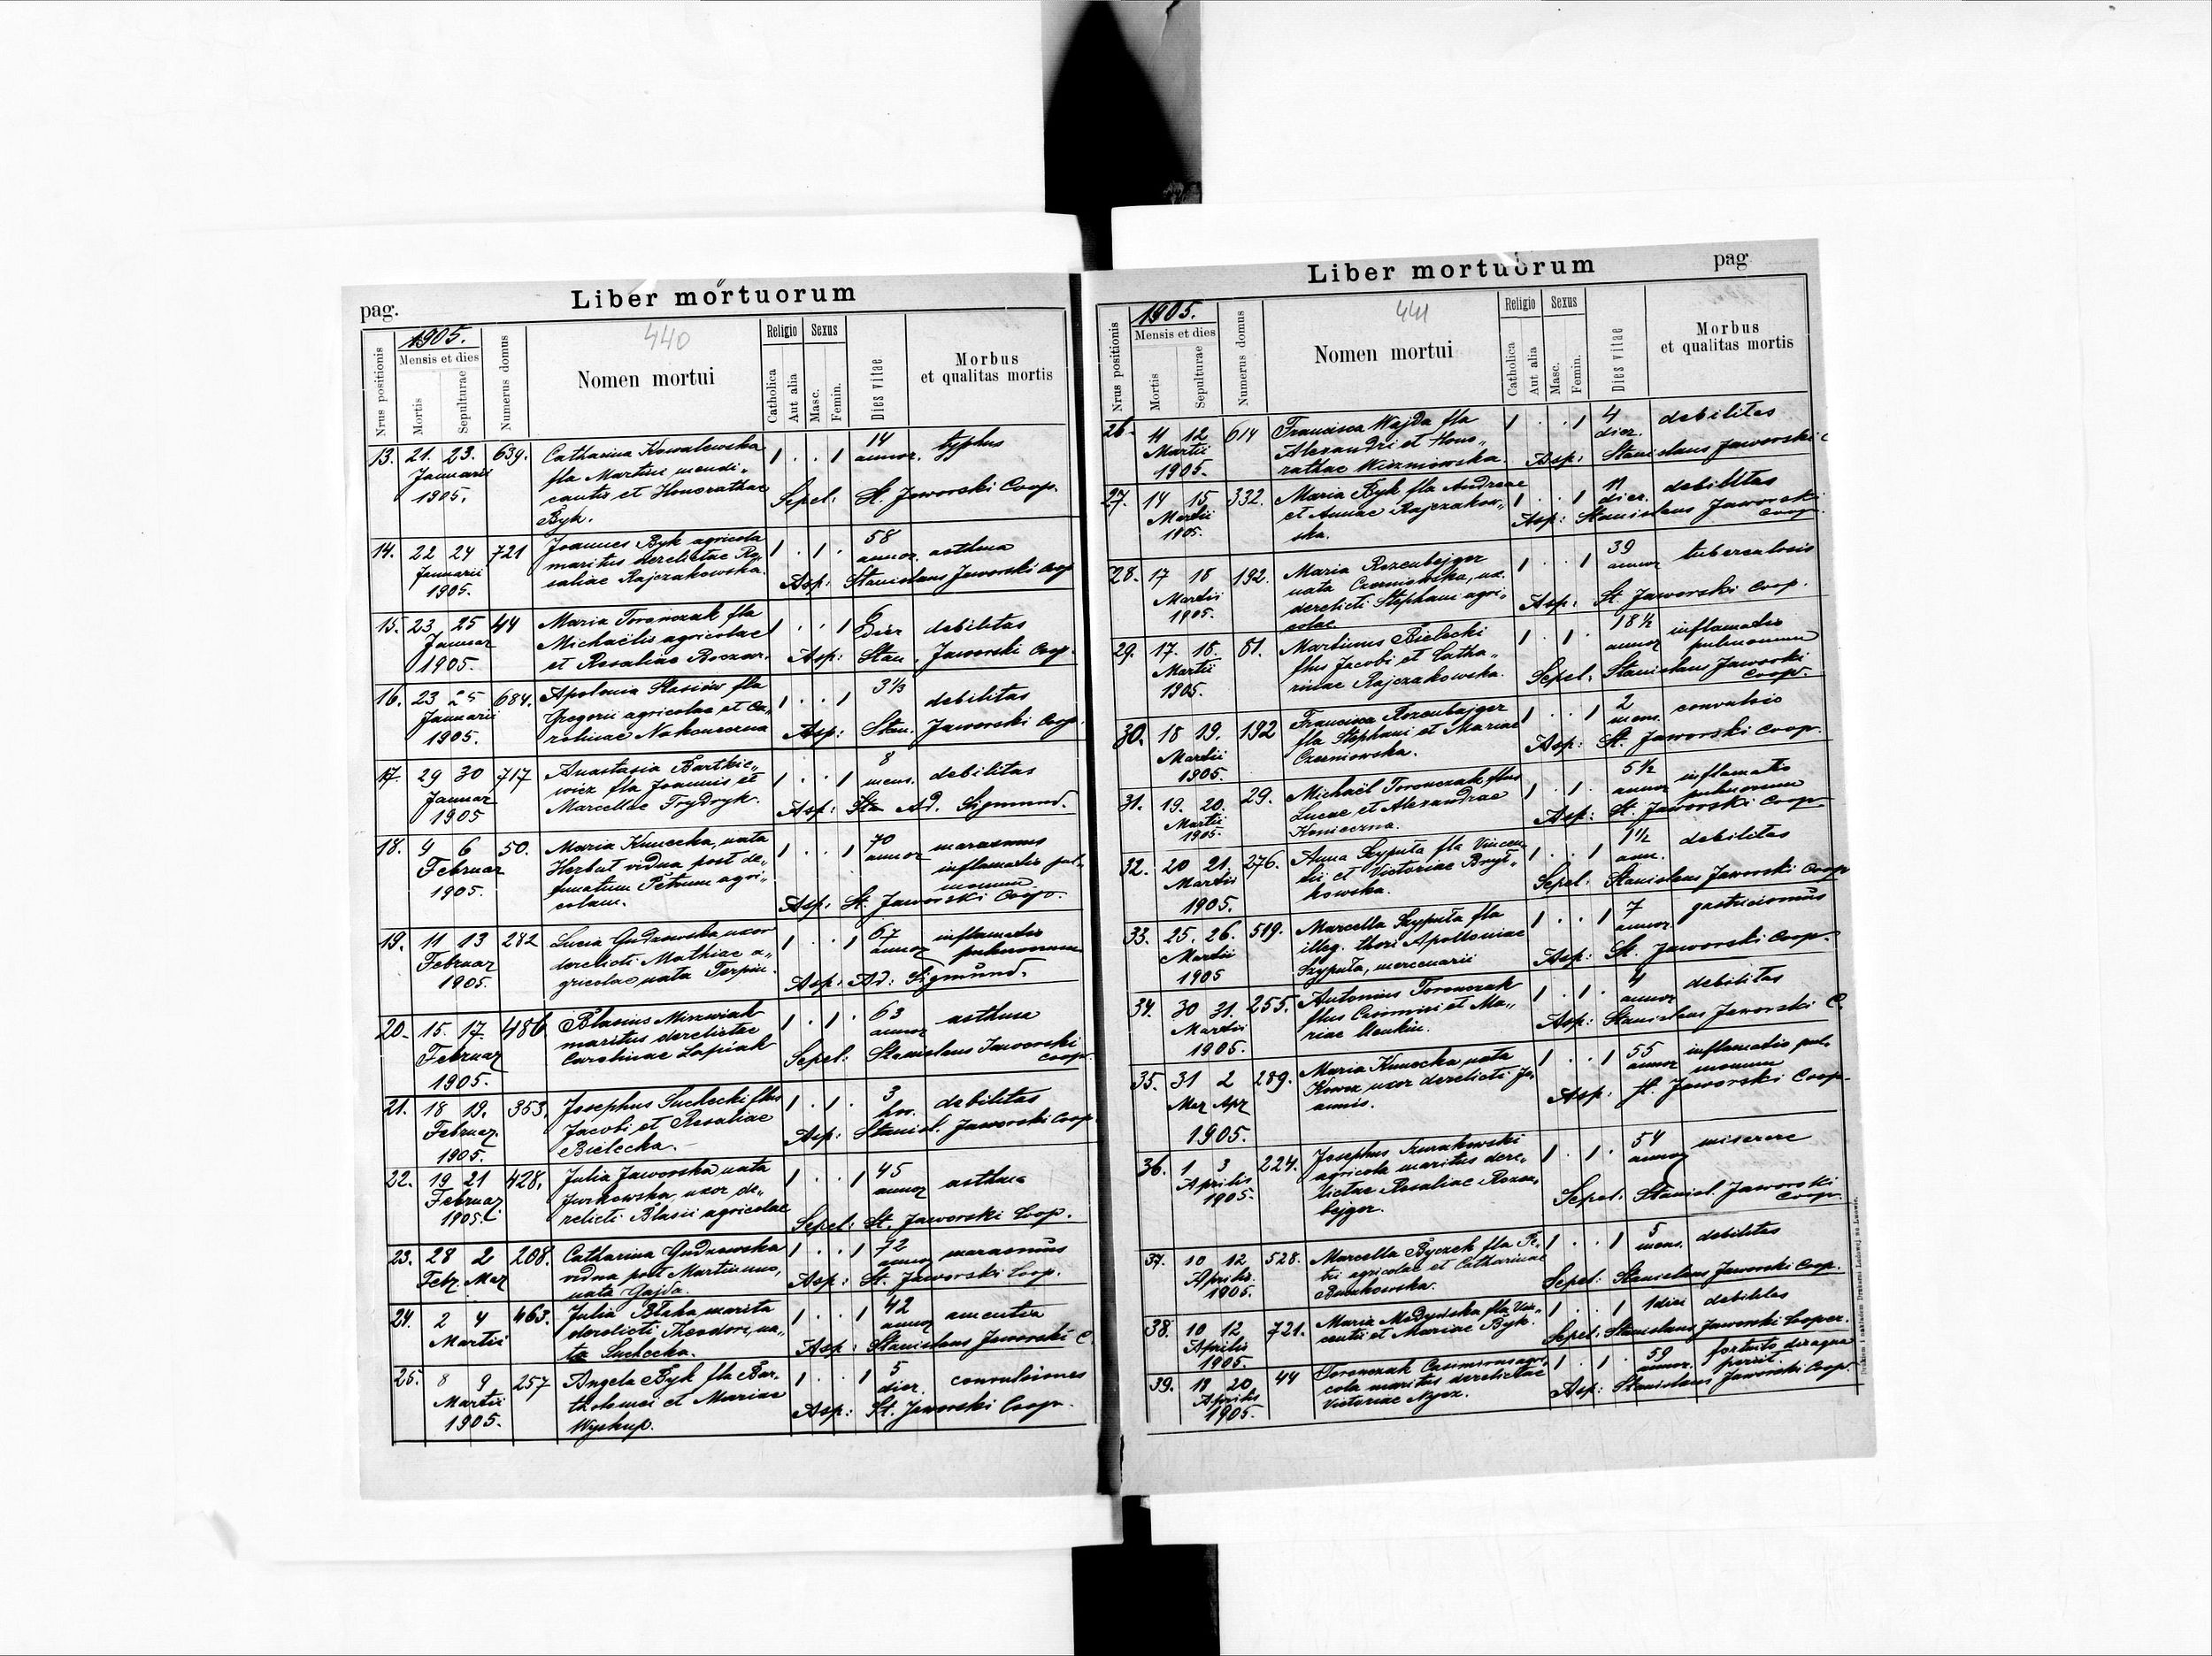 pag.
Liber mortuorum
1905.
440
Nrus positionis
Mensis et dies
Mortis
Sepulturae
Numerus domus
Nomen mortui
Religio
Catholica
Aut alia
Sexus
Masc.
Femin.
Dies vitae
Morbus
et qualitas mortis
13. 21. 23. 639. Catharina Kowalewska 1 . . 1 14 typhus
Januarii fla Martini mendi„ annor.
1905. cantis et Honorathae Sepel: St. Jaworski Coop.
Byk.
14. 22 24 721 Joannes Byk agricola 1 . 1 . 58
Januarii maritus derelictae Ro„ annor. asthma
1905. saliae Rajczakowska. Asp: Stanislaus Jaworski Coop
15. 23 25 44 Maria Toronczak fla 1 . . 1 6
Januar Michaëlis agricolae dier debilitas
1905. et Rosaliae Asp: Stan. Jaworski Coop.
16. 23 25 684. Apolonia Stasiów fla 1 . . 1 3⅓ debilitas
Januarii Gregorii agricolae et Ca„
1905. rolinae Nakoneczna Asp: Stan. Jaworski Coop.
17. 29 30 717 Anastasia Bartkie„ 1 . . 1 8
Januar wicz fla Joannis et mens. debilitas
1905 Marcellae Frydryk. Asp: Sta Ad. Sigmund.
18. 4 6 50. Maria Kunecka, nata 1 . . 1 70 marasmus
Februar Herbut vidua post de„ annor inflamatio pul„
1905. functum Petrum agri„ monum.
colam. Asp: St. Jaworski Coop.
19. 11 13 282 Lucia Gudzowska uxor 1 . . 1 67 inflamatio
Februar derelicti Mathiae a„ annor pulmonum
1905. gricolae nata Asp: Ad: Sigmund.
20. 15. 17. 486 Blasius Mirzwiak 1 . 1 . 63
Februar maritus derelictae annor asthma
1905. Carolinae Łapiak Sepel: Stanislaus Jaworski
coop.
21. 18 19. 353. Josephus Suchecki flius 1 . 1 . 3
Februar. Jacobi et Rosaliae hor. debilitas
1905. Bielecka. Asp: Stanisl. Jaworski Coop.
22. 19 21 428. Julia Jaworska nata 1 . . 1 45
Februar Jurkowska, uxor de„ annor asthma
1905. relicti Blasii agricolae Sepel: St. Jaworski Coop.
23. 28 2 208. Catharina Gudzowska 1 . . 1 72 marasmus
Febr. Mar vidua post Martinum, annor
nata Gajda. Asp: St. Jaworski Coop.
24. 2 4 463. Julia marita 1 . . 1 42 amentia
Martii derelicti Theodori, na„ annor
ta Suchecka. Asp: Stanislaus Jaworski C.
25. 8 9 257 Angela Byk fla Bar„ 1 . . 1 5
Martii tholomei et Mariae dier. convulsiones
1905. Wyskup. Asp: St. Jaworski Coop.
Liber mortuorum
pag
1905.
441
Nrus positionis
Mensis et dies
Mortis
Sepulturae
Numerus domus
Nomen mortui
Religio
Catholica
Aut alia
Sexus
Masc.
Femin.
Dies vitae
Morbus
et qualitas mortis
26. 11 12 614 Francisca Wajda fla 1 . . 1 4 debilitas
Martii Alexandri et Hono„ dier.
1905. rathae Wiszniowska. Asp: Stanislaus Jaworski C
27. 14 15 332. Maria Byk fla Andreae 1 . . 1 11 debilitas
Martii et Annae Rajczakow„ dier.
1905. ska. Asp: Stanislaus Jaworski
Coop.
28. 17 18 192. Maria Rozenbejger 1 . . 1 39 tuberculosis
Martii nata Czerniowska, ux. annor
1905. derelicti Stephani agri„ Asp: St. Jaworski Coop.
colae
29. 17. 18. 61. Martinus Bielecki 1 . 1 . 18½ inflamatio
Martii flius Jacobi et Catha„ annor pulmonum
1905. rinae Rajczakowska. Sepel: Stanislaus Jaworski
Coop.
30. 18 19. 192 Francisca Rozenbajger 1 . . 1 2 convulsio
Martii fla Stephani et Mariae mens.
1905. Czerniowska. Asp: St. Jaworski Coop.
31. 19. 20. 29. Michaël Toronczak flius 1 . 1 . 5½ inflamatio
Martii Lucae et Alexandrae annor pulmonum
1905. Konieczna. Asp: St. Jaworski Coop
32. 20 21. 276. Anna Szypuła fla Vincen„ 1 . . 1 1½ debilitas
Martii tii et Victoriae ann.
1905. kowska. Sepel: Stanislaus Jaworski Coop
33. 25. 26. 519. Marcella Szypuła fla 1 . . 1 7 gastricismus
Martii illeg. thori Apolloniae annor
1905 Szypuła, mercenarii Asp: St. Jaworski Coop.
34. 30 31. 255. Antonius Toronczak 1 . 1 . 4 debilitas
Martii flius Casimiri et Ma„ annor
1905. riae Asp: Stanislaus Jaworski C.
35. 31 2 289. Maria Kunocka, nata 1 . . 1 55 inflamatio pul„
Mar Apr uxor derelicti Jo„ annor monum
1905. annis. Asp: St. Jaworski Coop.
36. 1 3 224. Josephus Szurakowski 1 . 1 . 54 miserere
Aprilis agricola maritus dere„ annor
1905. lictae Rosaliae Rozen„ Sepel: Stanisl. Jaworski
bejger. Coop.
37. 10 12 528. Marcella Byczek fla Pe„ 1 . . 1 5 debilitas
Aprilis tri agricolae et Catharinae mens.
1905. Sepel: Stanislaus Jaworski Coop.
38. 10 12 721. Maria Medyńska fla Vin„ 1 . . 1 1 diei debilitas
Aprilis centii et Mariae Byk. Sepel: Stanislaus Jaworski Cooper.
1905.
39. 18 20 44 Toronczak Casimirus agri„ 1 . 1 . 59 fortuito
Aprilis cola maritus derelictae annor. periit.
1905. Victoriae Asp: Stanislaus Jaworski Coop.